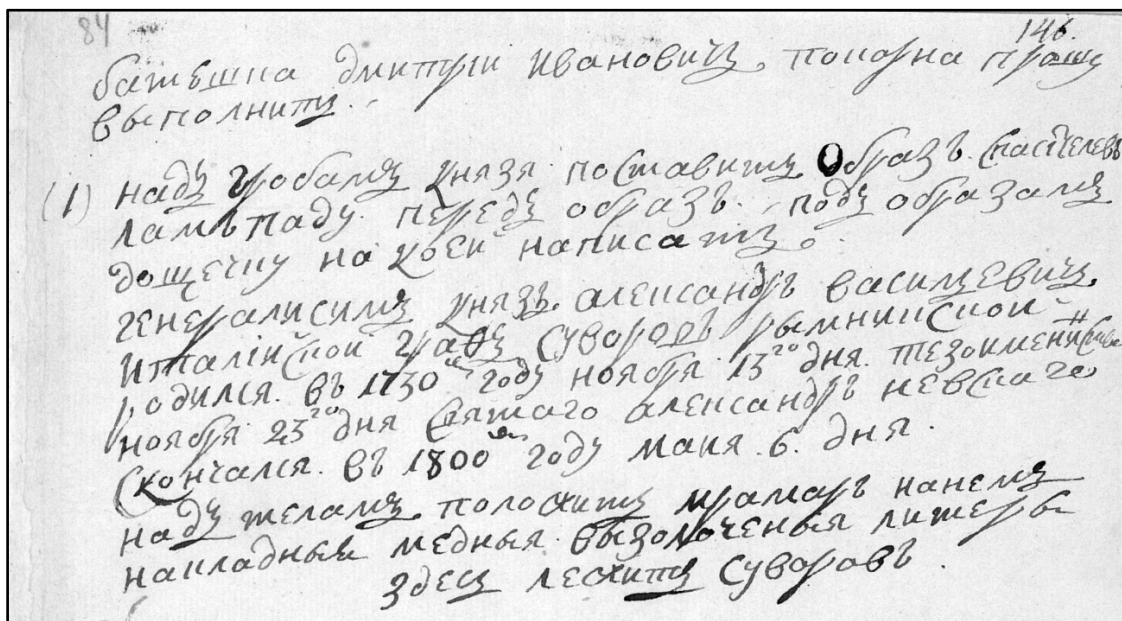 84
146.
батюшка дмитрий ивановичъ. покорна прошу
выполнить.
(1) надъ гробамъ князя поставить образъ. спасителевъ
лампаду. передъ образъ. подъ образамъ
дощечку на коей написать.
генералисимъ князь. александръ васильевичъ
италійской графъ суворовъ рымникской
родился. въ 1730м году ноября 13го дня. тезоименит
ноября 23го дня святаго александръ невскаго
скончался. въ 1800м году маия. 6. дня.
надъ теламъ положить мрамаръ нанемъ
накладныя медныя. вызолоченыя литеры
здесь лежитъ суворовъ